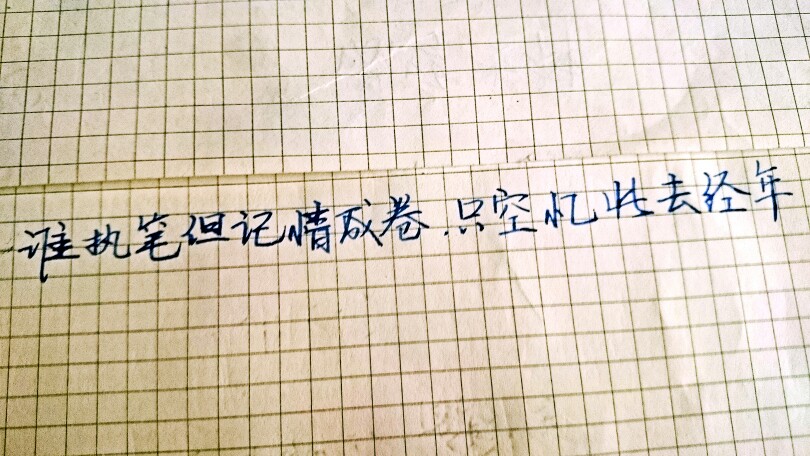 谁执笔但记情成卷,只空忆此去经年